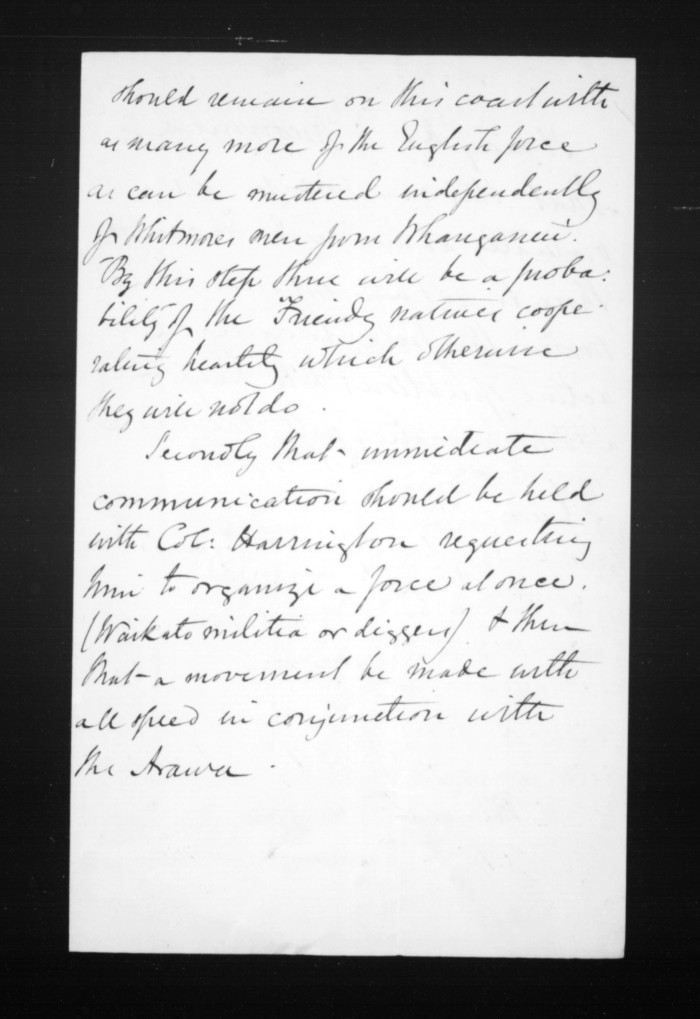 should remain on this coast with
as many more of the English force
as can be mustered independently
of Whitmores men from Whanganui.
By this step there will be a proba-
bility of the Friendly natives coope-
rating heartily which otherwise
they will not do.
Secondly that immediate
communication should be held
with Col: Harrington requesting
him to organize a force at once.
(Waikato militia or diggers) & then
that a movement be made with
all speed in conjunction with
the Arawa.